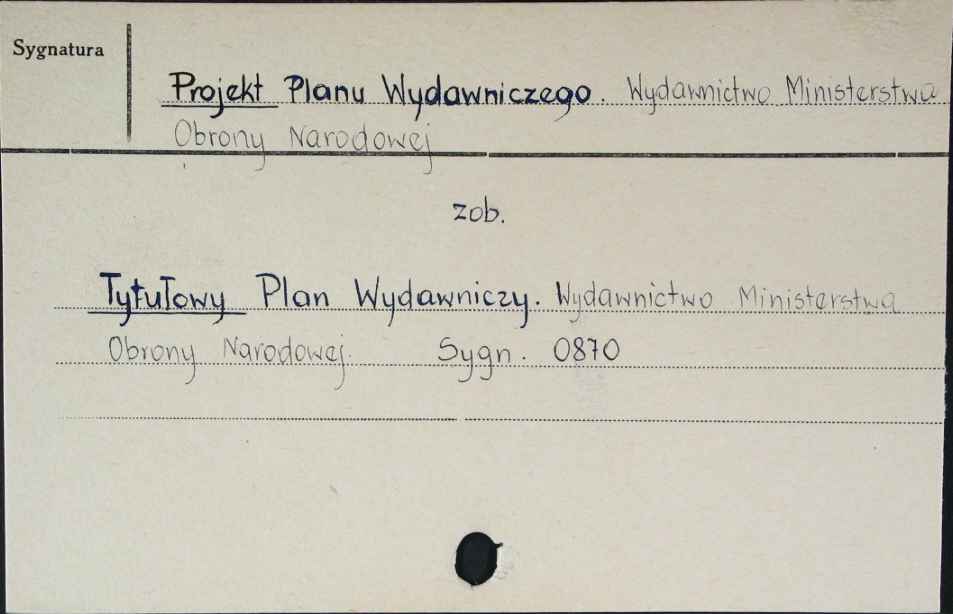 Sygnatura
Projekt Planu Wydawniczego. Wydawnictwo Ministerstwa
Obrony Narodowej
zob.
Tytułowy Plan Wydawniczy. Wydawnictwo Ministerstwa
Obrony Narodowej. Sygn. 0870